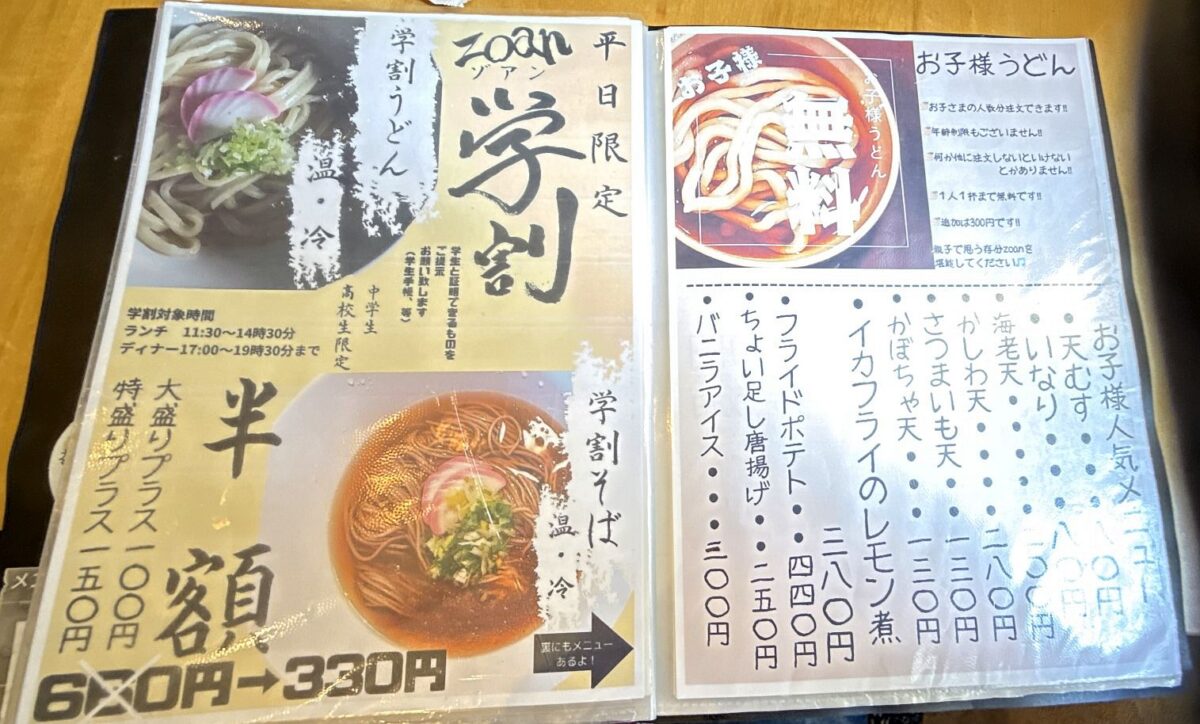 平日限定
zoan
ゾアン
学割
学割うどん
温・冷
学生と証明できるものを
ご提示
お願い致します
(学生手帳、等)
中学生
高校生限定
学割対象時間
ランチ 11:30〜14時30分
ディナー17:00〜19時30分まで
半額
大盛りプラス一〇〇円
特盛りプラス一五〇円
学割そば
温・冷
660円→330円
裏にもメニュー
あるよ!
お子様
無料
お子様うどん
お子様うどん
お子さまの人数分注文できます!!
年齢制限もございません!!
何か他に注文しないといけない
とかありません!!
1人1杯まで無料です!!
追加は300円です!!
親子で思う存分zoanを
堪能してください♫
お子様人気メニュー
・天むす
・いなり
・海老天・・・・二八〇円
・かしわ天・・・
・さつまいも天・一三〇円
・かぼちゃ天・・一三〇円
・イカフライのレモン煮
三八〇円
・フライドポテト・・四四〇円
・ちょい足し唐揚げ・・二五〇円
・バニラアイス・・・三〇〇円